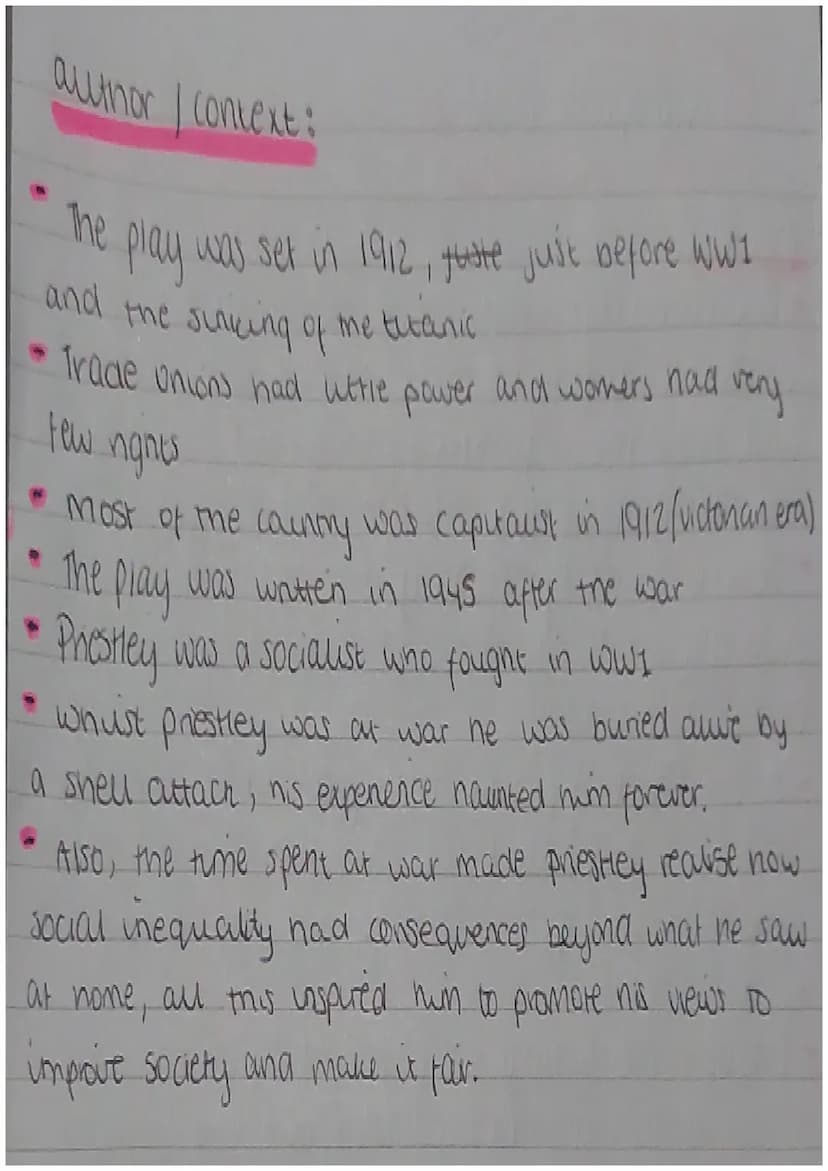 author / context:
• The play was set in 1912, just before WW1
and the sinking of the titanic
• Trade Unions had little power and workers had very
few rights
• Most of the country was capitalist in 1912 (victorian era)
• The play was written in 1945 after the war
• Priestley was a socialist who fought in WW1
• Whilst priestley was at war he was buried alive by
a shell attack, his experience haunted him forever.
• Also, the time spent at war made priestley realise how
social inequality had consequences beyond what he saw
at home, all this inspired him to promote his views to
improve society and make it fair.